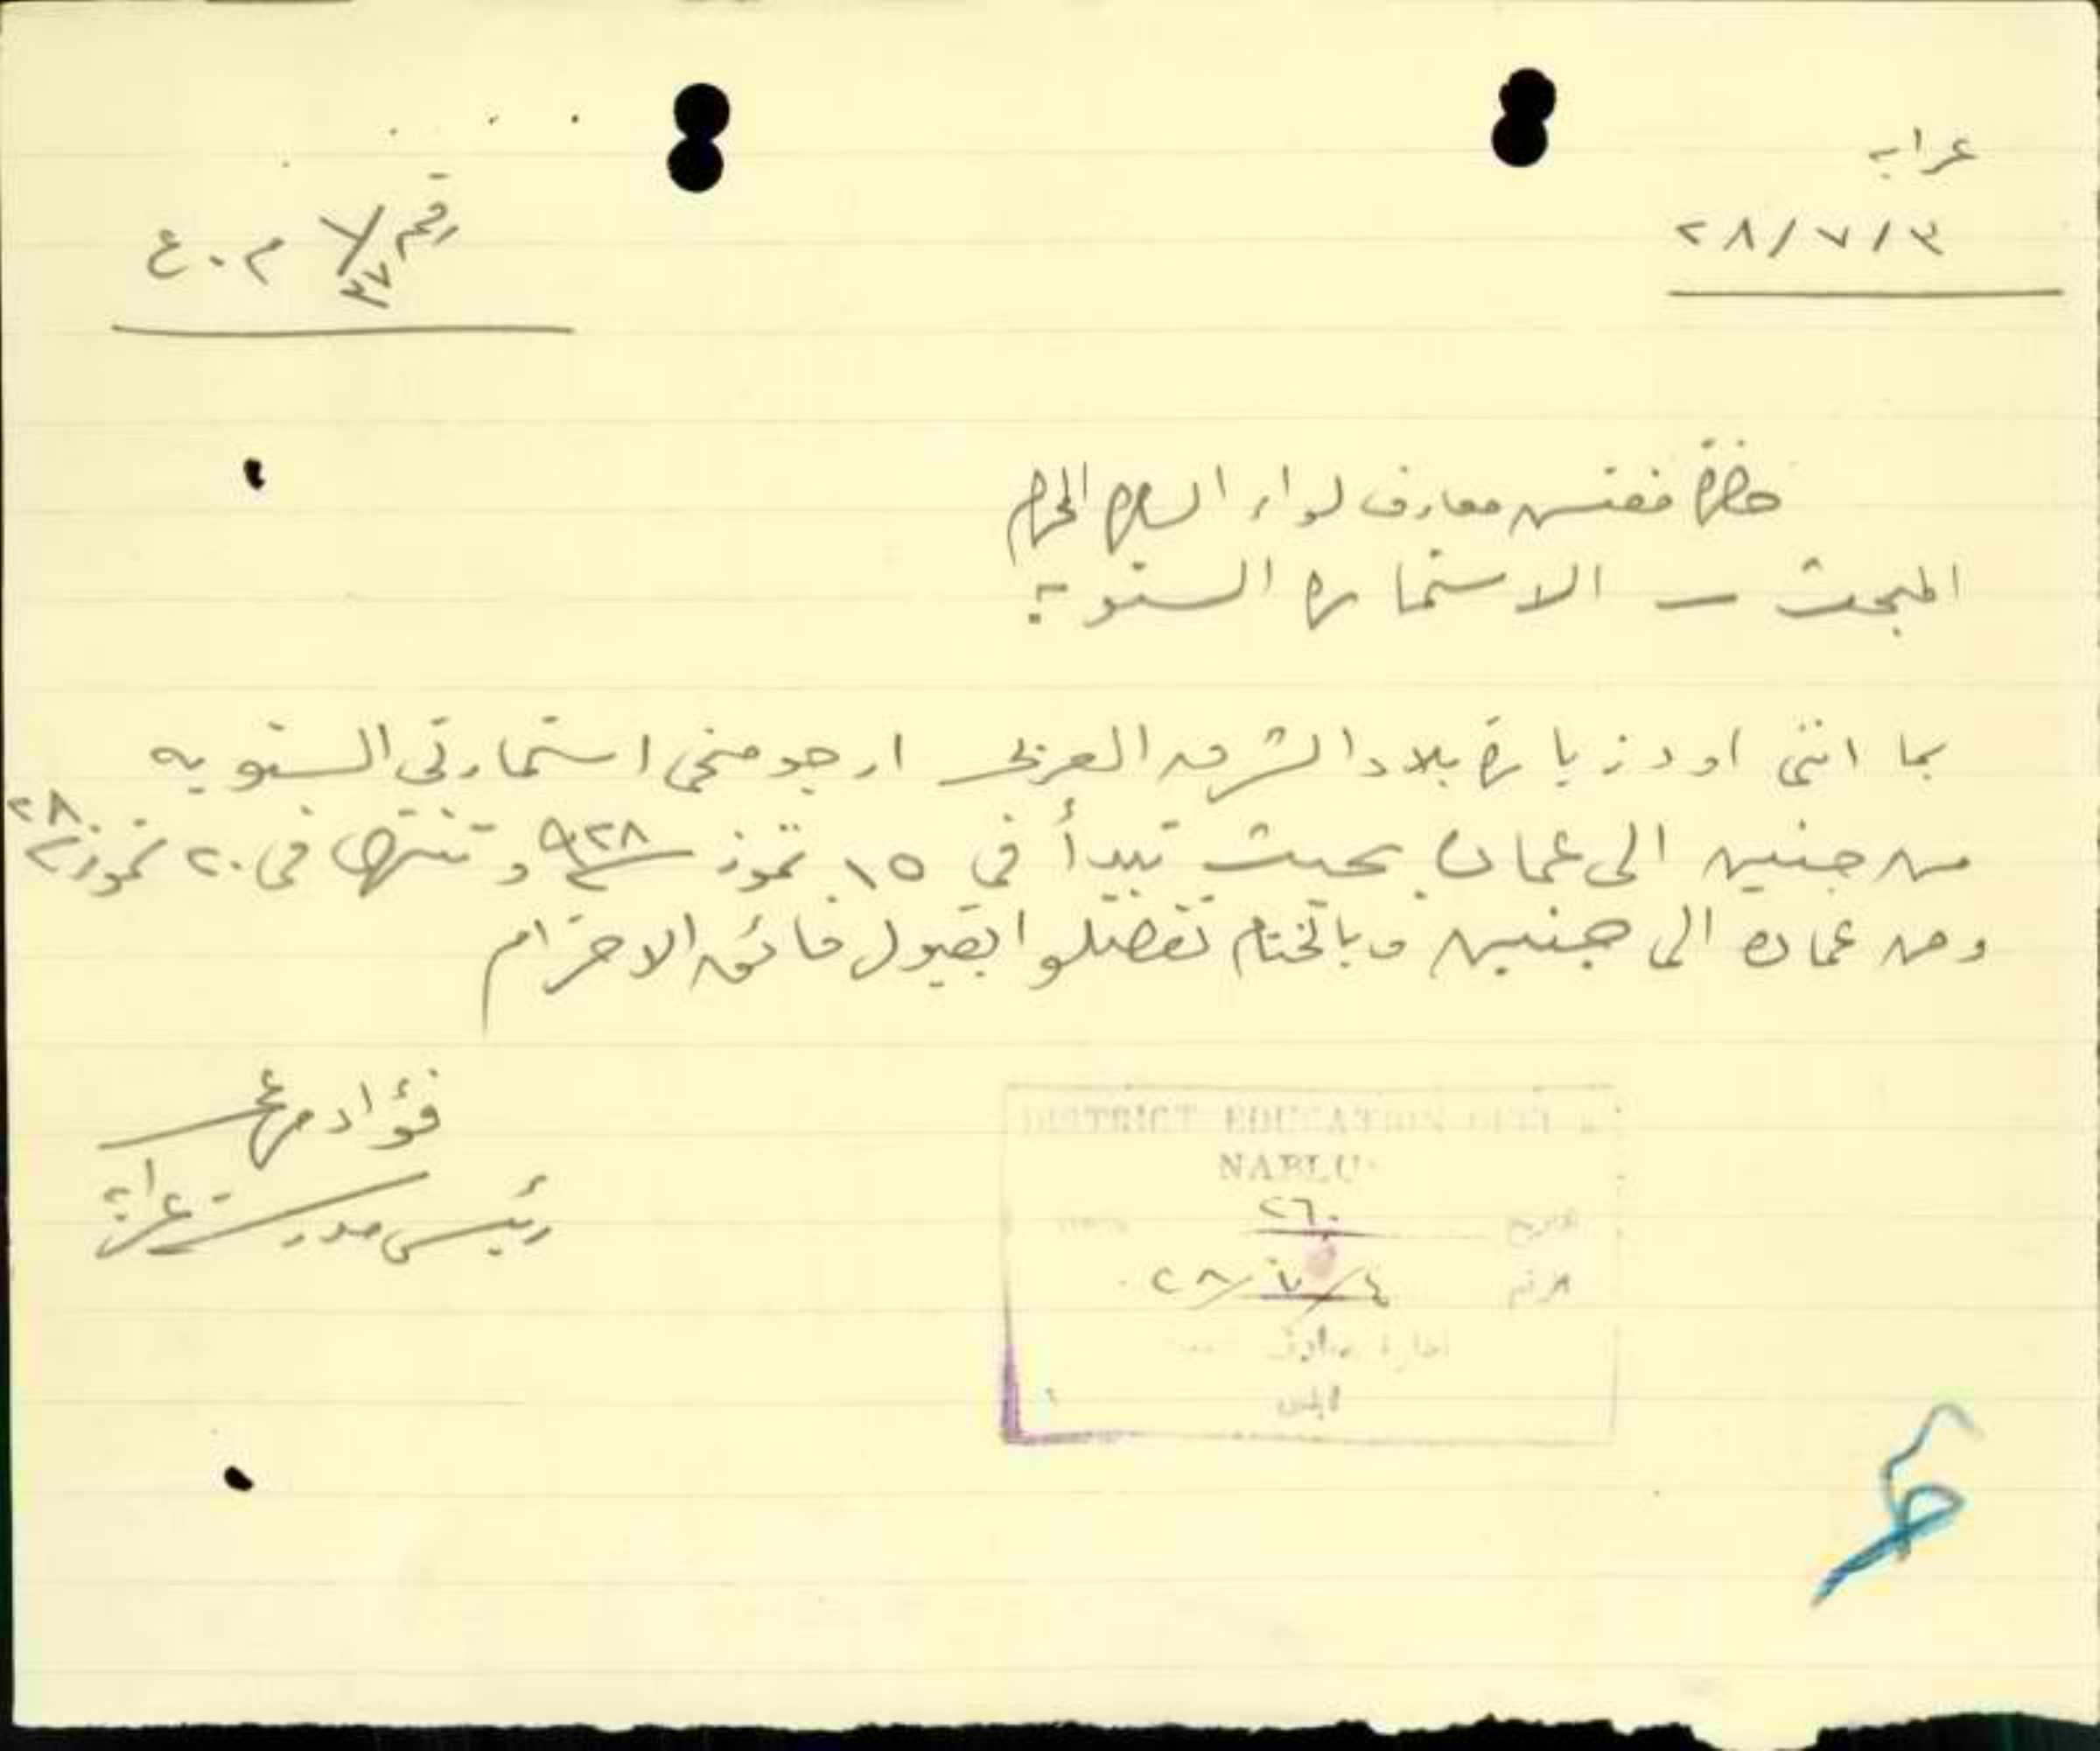 عرابه
٢٨/٧/٣
رقم ٧/٣٧ م. ع
حضرة مفتش معارف لواء السامرة المحترم
المبحث – الاستمارة السنوية
بما انني اود زيارة بلاد الشرق العربي ارجو منحي استمارتي السنويه
من جنين الى عمان بحيث تبدأ في ١٥ تموز سنة ٩٢٨ وتنتهي في ٢٠ تموز سنة ٢٨
ومن عمان الى جنين وبالختام تفضلوا بقبول فائق الاحترام
فؤاد
رئيس مدرسة عرابه
DISTRICT EDUCATION
NABLUS
التاريخ ٢٦٠
الرقم ٢٨/٧/٤
ادارة معارف
نابلس